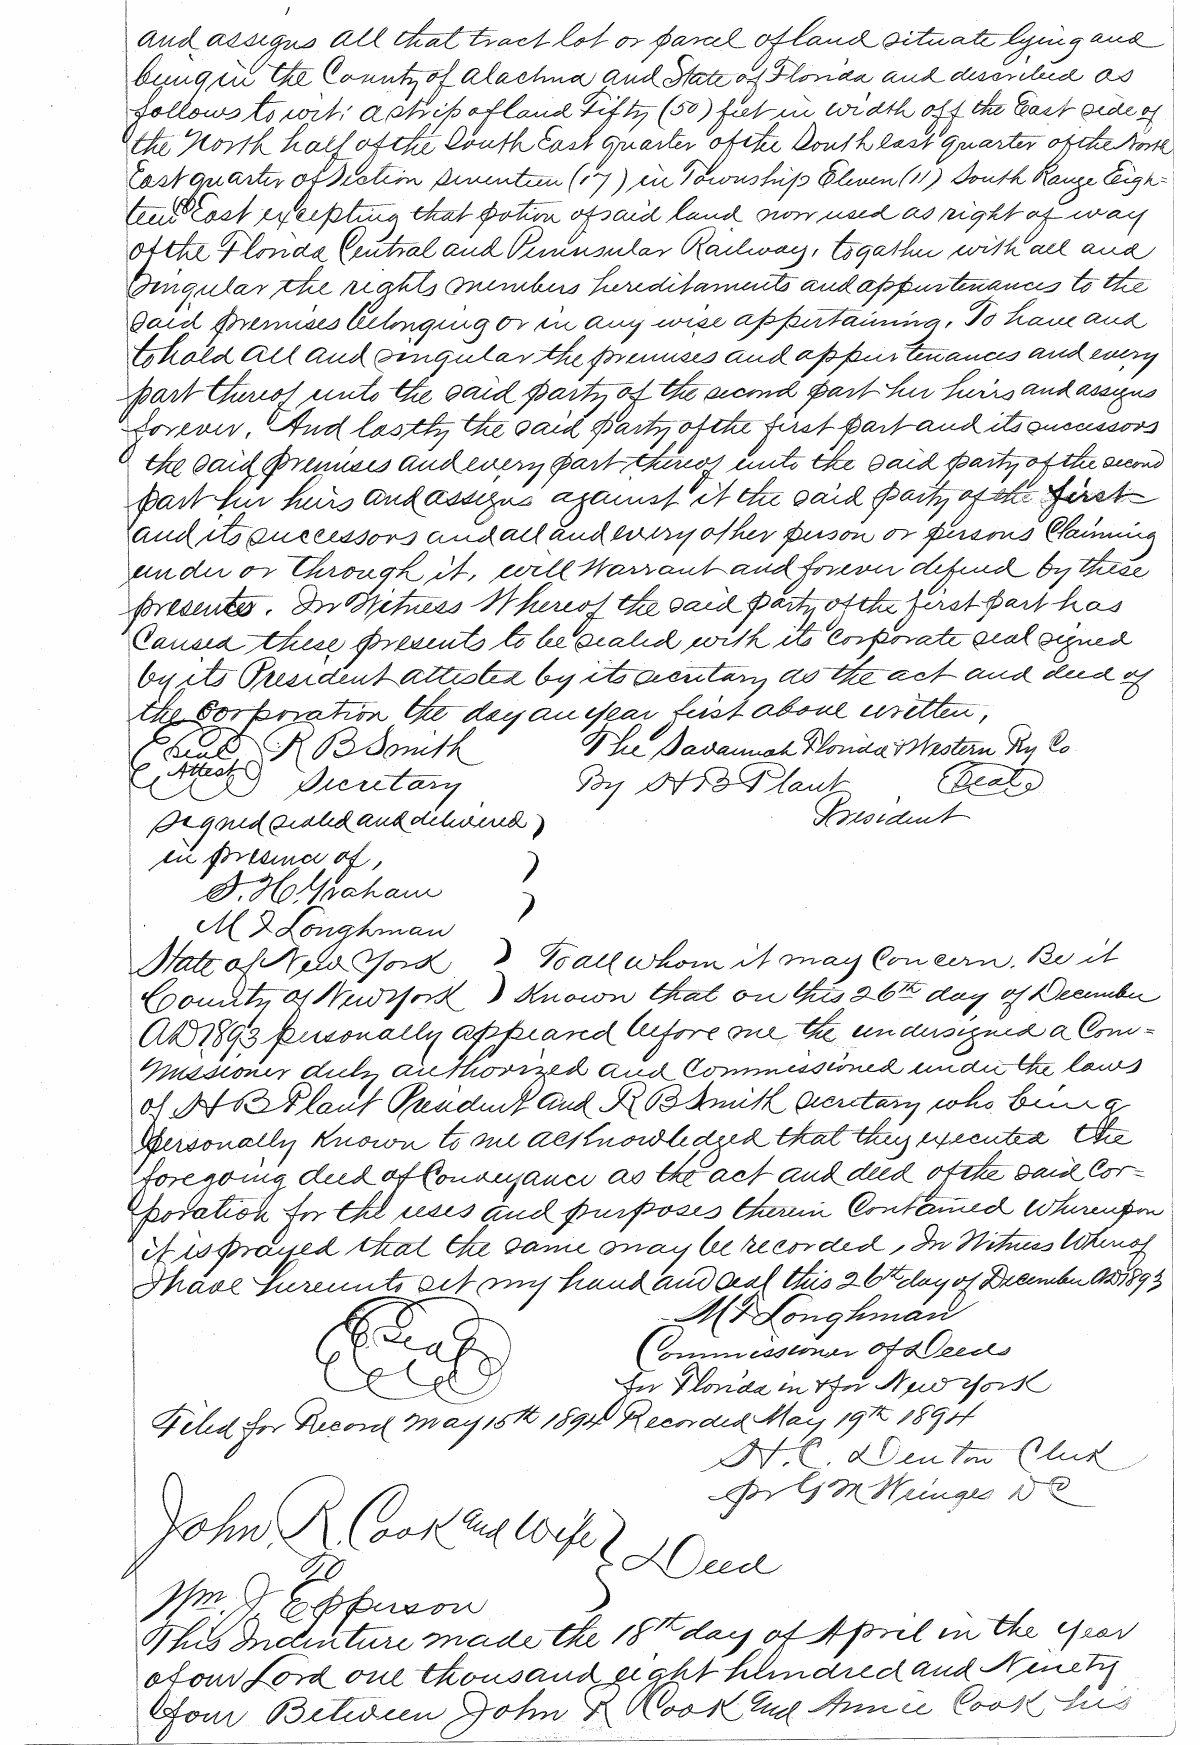 and assigns all that tract lot or parcel of land situate lying and
being in the County of Alachua and State of Florida and described as
follows to wit: a strip of land Fifty (50) feet in width off the East side of
the North half of the South East quarter of the South east quarter of the North
East quarter of Section Seventeen (17) in Township Eleven (11) South Range Eigh=
teen East excepting that potion of said land now used as right of way
of the Florida Central and Peninsular Railway, togather with all and
singular the rights members hereditaments and appurtenances to the
said premises belonging or in any wise appertaining. To have and
to hold all and singular the premises and appurtenances and every
part thereof unto the said party of the second part her heirs and assigns
forever. And lastly the said party of the first part and its successors
the said premises and every part thereof unto the said party of the second
part her heirs and assigns against it the said party of the first
and its successors and all and every other person or persons Claiming
under or through it, will Warrant and forever defend by these
presents. In Witness Whereof the said party of the first part has
Caused these presents to be sealed with its corporate seal signed
by its President attested by its secretary as the act and deed of
the Corporation the day an year first above written,
(Seal) R B Smith The Savannah Florida & Western Ry Co
Attest Secretary By H B Plant (Seal)
President
Signed sealed and delivered )
in presence of, )
S. H. Graham )
M F Longhman
State of New York ) To all whom it may Concern. Be it
County of New York ) Known that on this 26th day of December
AD 1893 personally appeared before me the undersigned a Com=
missioner duly authorized and Commissioned under the laws
of H B Plant President and R B Smith secretary who being
personally Known to me acknowledged that they executed the
foregoing deed of Conveyance as the act and deed of the said Cor=
poration for the uses and purposes therein Contained Whereupon
it is prayed that the same may be recorded, In Witness Whereof
I have hereunto set my hand and seal this 26th day of December AD 1893
M F Longhman
(Seal) Commissioner of Deeds
for Florida in & for New York
Filed for Record May 15th 1894 Recorded May 19th 1894
H. C. Denton Clerk
pr G M D C
John R. Cook and Wife }
To } Deed
Wm. J. Epperson }
This Indenture made the 18th day of April in the Year
of our Lord one thousand eight hundred and Ninety
four Between John R Cook and Annie Cook his